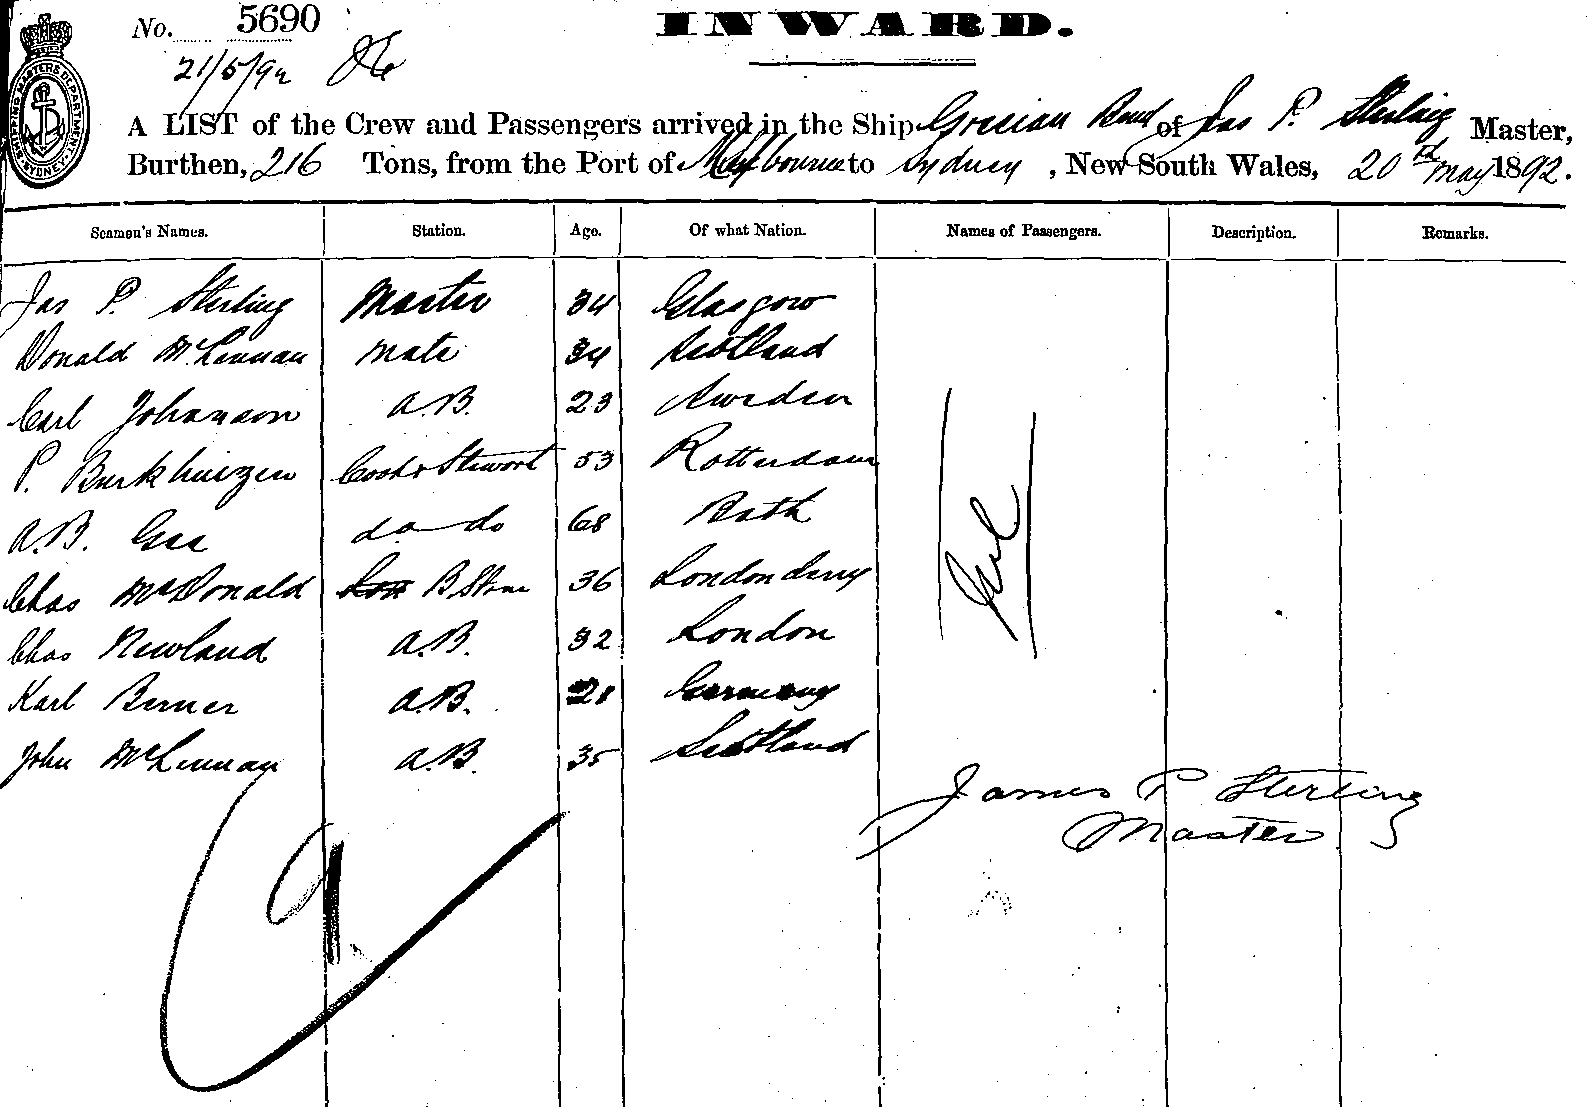 No. 5690
INWARD.
21/5/92
SHIPPING MASTERS DEPARTMENT SYDNEY
A LIST of the Crew and Passengers arrived in the Ship Grecian Bend of Jas P. Sterling Master,
Burthen, 216 Tons, from the Port of Melbourne to Sydney, New South Wales, 20th May 1892.
Seamen's Names. Station. Age. Of what Nation. Names of Passengers. Description. Remarks.
Jas P. Sterling Master 34 Glasgow
Donald McLennan Mate 34 Scotland
Carl Johanson A.B. 23 Sweden
P. Burkhuizen Cook & Stewort 53 Rotterdam
A.B. Gee do do 68 Bath
Chas McDonald B Stone 36 Londonderry
Chas Newland A.B. 32 London
Karl Berner A.B. 28 Germany
John McLennan A.B. 35 Scotland
James P Sterling
Master
9